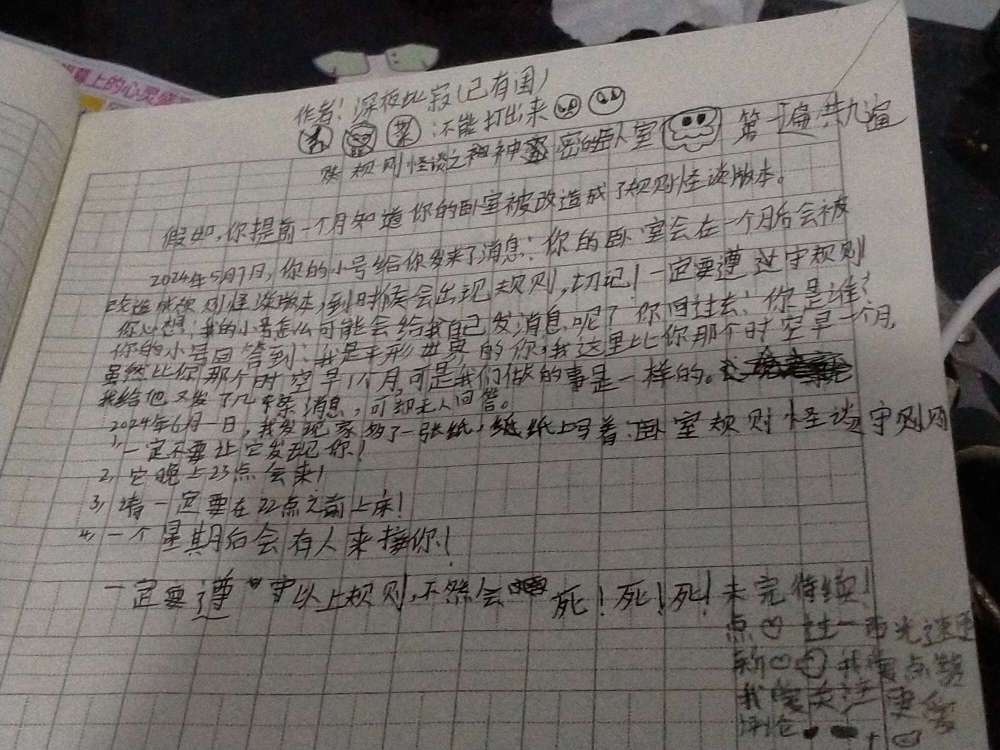 幕上的心灵盛
作者：深夜比寂（已有国）
：不能打出来
规则怪谈之神密的卧室 第一遍共九遍
假如，你提前一个月知道你的卧室被改造成了规则怪谈版本。
2024年5月7日，你的小号给你发来了消息：你的卧室会在一个月后会被
改造成规则怪谈版本，到时候会出现规则，切记！一定要遵过守规则
你心想：我的小号怎么可能会给我自己发消息呢？你回过去：你是谁？
你的小号回答到：我是平形世界的你，我这里比你那个时空早一个月，
虽然比你那个时空早1个月，可是我们做的事是一样的。
我给他又发了几条消息，可却无人回答。
2024年6月一日，我发现家多了一张纸，纸上写着：卧室规则怪谈守则内
1，一定不要让它发现你！
2，它晚上23点会来！
3，请一定要在22点之前上床！
4，一个星期后会有人来接你！
一定要遵守以上规则，不然会死！死！死！未完待续！
点 过一百光速更
新 我要点赞
我要关注
评论